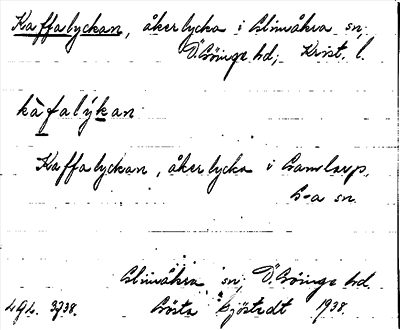 Kaffalyckan, åkerlycka i Glimåkra sn.
Ö. Göinge hd; Krist. l.
kàfalýkan
Kaffalyckan, åkerlycka i Gamlarp,
G-a sn.
Glimåkra sn, Ö. Göinge hd
LGL. 3738. Gösta Sjöstedt 1938.